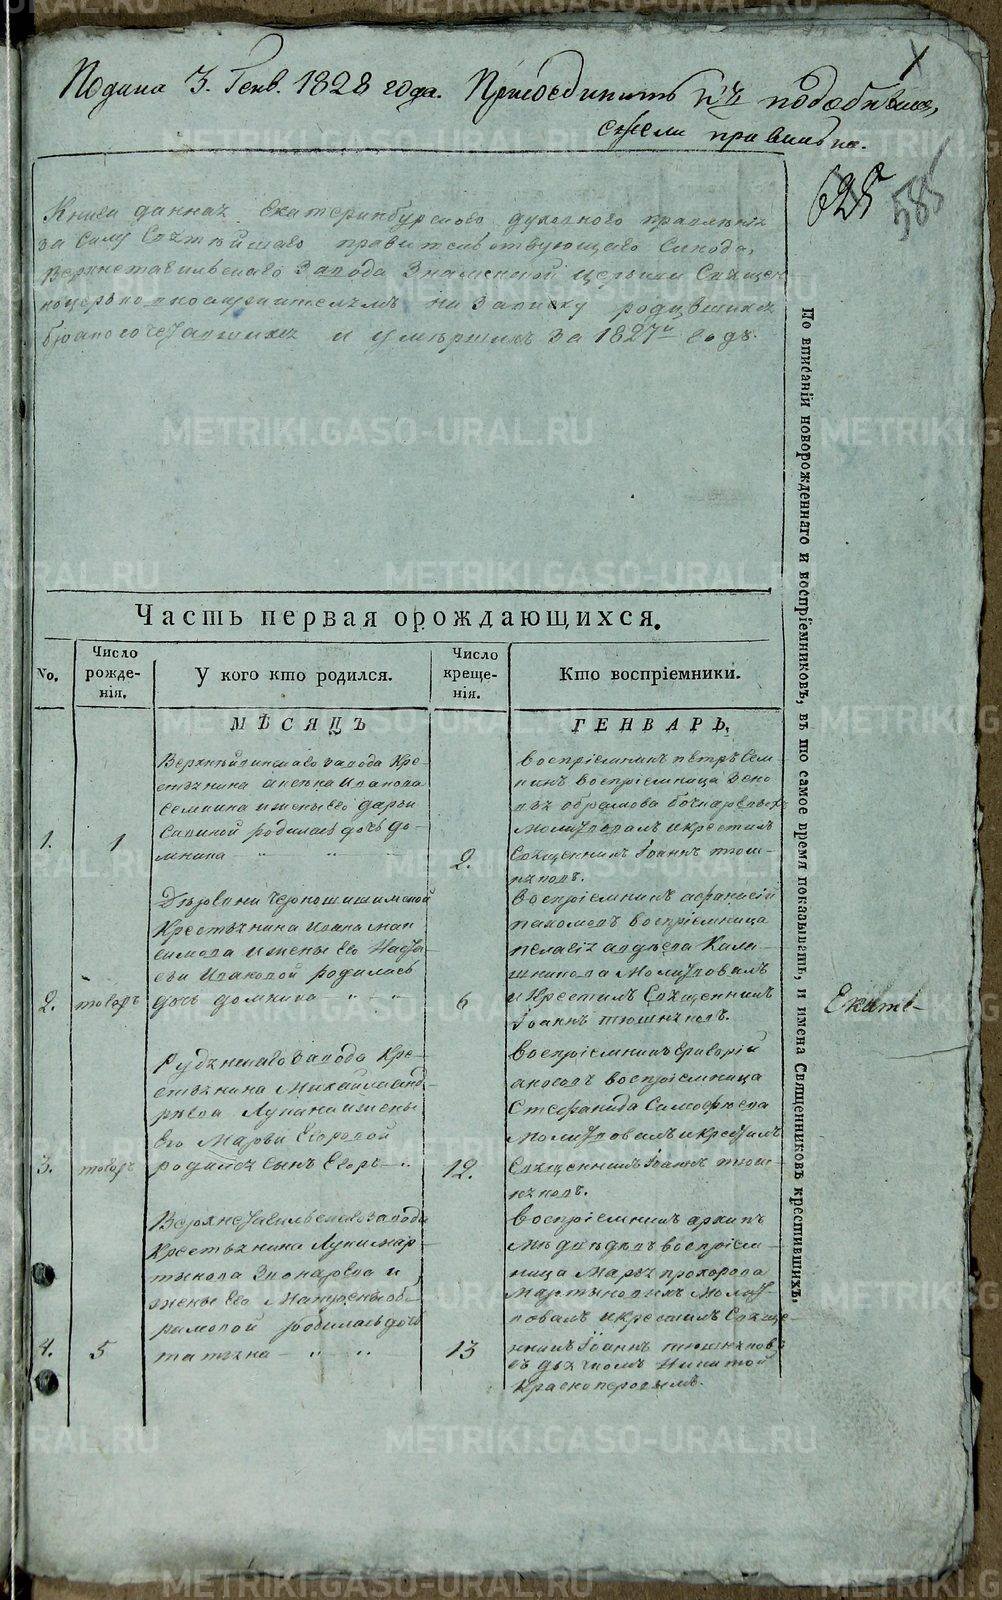 Подана 3. Генв. 1828 года. Присоединить къ подобнымъ,
если правильна.
625
585
Книга данная Екатеринбурскаго духовнаго правленія
за силу Святѣйшаго правительствующаго Синода,
Верхнетагильскаго Завода Знаменской Церькви Священ
ноцерьковнослужителямъ на записку родившихся
бракосочетавшихся и умершихъ за 1827й годъ.
По вписаніи новорожденнаго и воспріемниковъ, въ то самое время показывать, и имена Священниковъ крестившихъ.
Часть первая орождающихся.
No.
Число рожде-нія.
У кого кто родился.
Число креще-нія.
Кто воспріемники.
МѢСЯЦЪ ГЕНВАРЬ.
1.
1
завода Кре-
стьянина Ивановa
Семкина и жены его Дарьи
Савиной родилась дочь До-
мника
2.
воспріемникъ петръ Сем
кинъ воспріемница
Молитвовалъ и крестилъ
Священникъ Іоаннъ тюш-
няковъ.
2.
товожъ
Деревни Черношишимской
Крестьянина Ивана Мак
симова и жены его Наста
сьи Ивановой родилась
дочь домника
6
воспріемникъ афанасій
пахомовъ воспріемница
пелагія авдѣева Кала-
шникова Молитвовалъ
и Крестилъ Священникъ
Іоаннъ тюшняковъ.
Екате-
3.
товожъ
Рудянскаго завода Кре-
стьянина Михайла анд-
рѣева Лукина и жены
Его Марьи Егоровой
родился Сынъ Егоръ
12.
воспріемникъ Григорій
воспріемница
Стефанида
Молитвовалъ и крестилъ
Священникъ Іоаннъ тюш-
няковъ.
4.
5
Верхнетагильскаго завода
Крестьянина Луки мар-
тынова Звонарева и
жены Его
родилась дочь
татьяна
13
воспріемникъ архипъ
Медведевъ воспріем-
ница Марья прохорова
Мартыновыхъ Молит-
вовалъ и крестилъ Свяще-
нникъ Іоаннъ тюшняковъ
съ дьячкомъ Никитой
Красноперовымъ.
METRIKI.GASO-URAL.RU